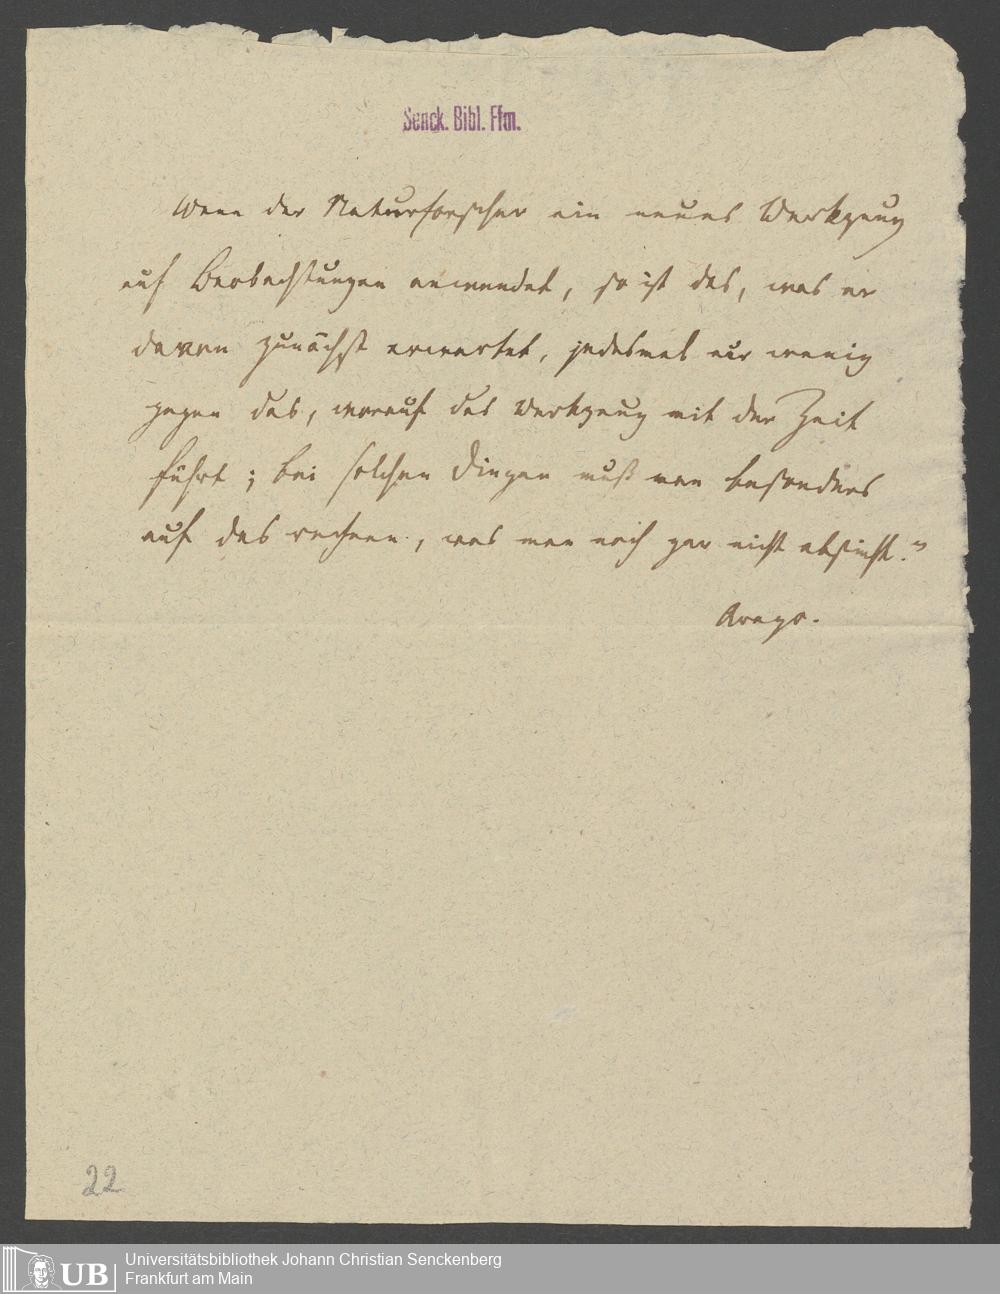 Senck. Bibl. Ffm.
Wenn der Naturforscher ein neues Werkzeug
auf Beobachtungen anwendet, so ist das, was er
davon zunächst erwartet, jedesmal nur wenig
gegen das, worauf das Werkzeug mit der Zeit
führt; bei solchen Dingen muß man besonders
auf das rechnen, was man noch gar nicht absieht."
Arago.
22
UB
Universitätsbibliothek Johann Christian Senckenberg
Frankfurt am Main